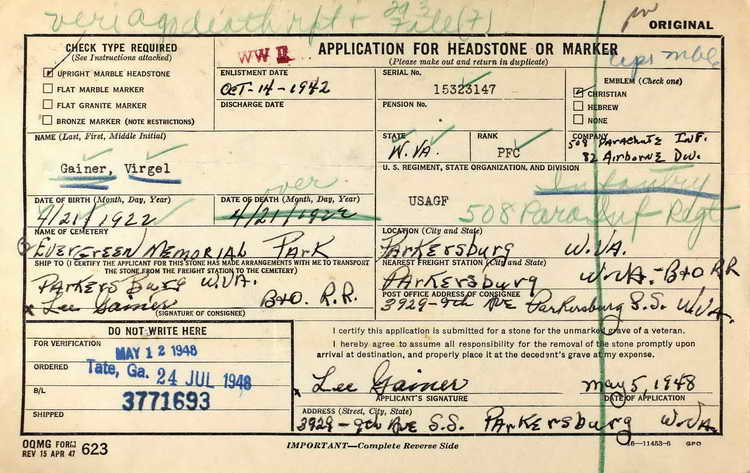 veri ago death rpt + 293 File (7)
ORIGINAL
CHECK TYPE REQUIRED
(See Instructions attached)
UPRIGHT MARBLE HEADSTONE
FLAT MARBLE MARKER
FLAT GRANITE MARKER
BRONZE MARKER (NOTE RESTRICTIONS)
WW II
APPLICATION FOR HEADSTONE OR MARKER
(Please make out and return in duplicate)
ENLISTMENT DATE
OCT-14-1942
DISCHARGE DATE
SERIAL NO.
15323147
PENSION NO.
EMBLEM (Check one)
CHRISTIAN
HEBREW
NONE
NAME (Last, First, Middle Initial)
Gainer, Virgel
STATE
W.VA.
RANK
PFC
COMPANY
508 PARACHUTE INF.
82 Airborne Div.
U. S. REGIMENT, STATE ORGANIZATION, AND DIVISION
USAGF
Infantry
508 Para Inf Regt
DATE OF BIRTH (Month, Day, Year)
4/21/1922
over
DATE OF DEATH (Month, Day, Year)
4/21/1922
NAME OF CEMETERY
EVERGREEN MEMORIAL PARK
LOCATION (City and State)
PARKERSBURG W.VA.
SHIP TO (I CERTIFY THE APPLICANT FOR THIS STONE HAS MADE ARRANGEMENTS WITH ME TO TRANSPORT THE STONE FROM THE FREIGHT STATION TO THE CEMETERY)
PARKERSBURG W.VA.
Lee Gainer B&O. R.R.
(SIGNATURE OF CONSIGNEE)
NEAREST FREIGHT STATION (City and State)
PARKERSBURG W.VA.-B&O RR
POST OFFICE ADDRESS OF CONSIGNEE
3929-9th AVE Parkersburg S.S. W.VA.
DO NOT WRITE HERE
FOR VERIFICATION
MAY 12 1948
ORDERED
Tate, Ga. 24 JUL 1948
B/L
3771693
SHIPPED
I certify this application is submitted for a stone for the unmarked grave of a veteran.
I hereby agree to assume all responsibility for the removal of the stone promptly upon arrival at destination, and properly place it at the decedent's grave at my expense.
Lee Gainer
APPLICANT'S SIGNATURE
May 5, 1948
DATE OF APPLICATION
ADDRESS (Street, City, State)
3929-9th AVE S.S. PARKERSBURG W.VA.
OQMG FORM 623
REV 15 APR 47
IMPORTANT—Complete Reverse Side
16-11453-6 GPO